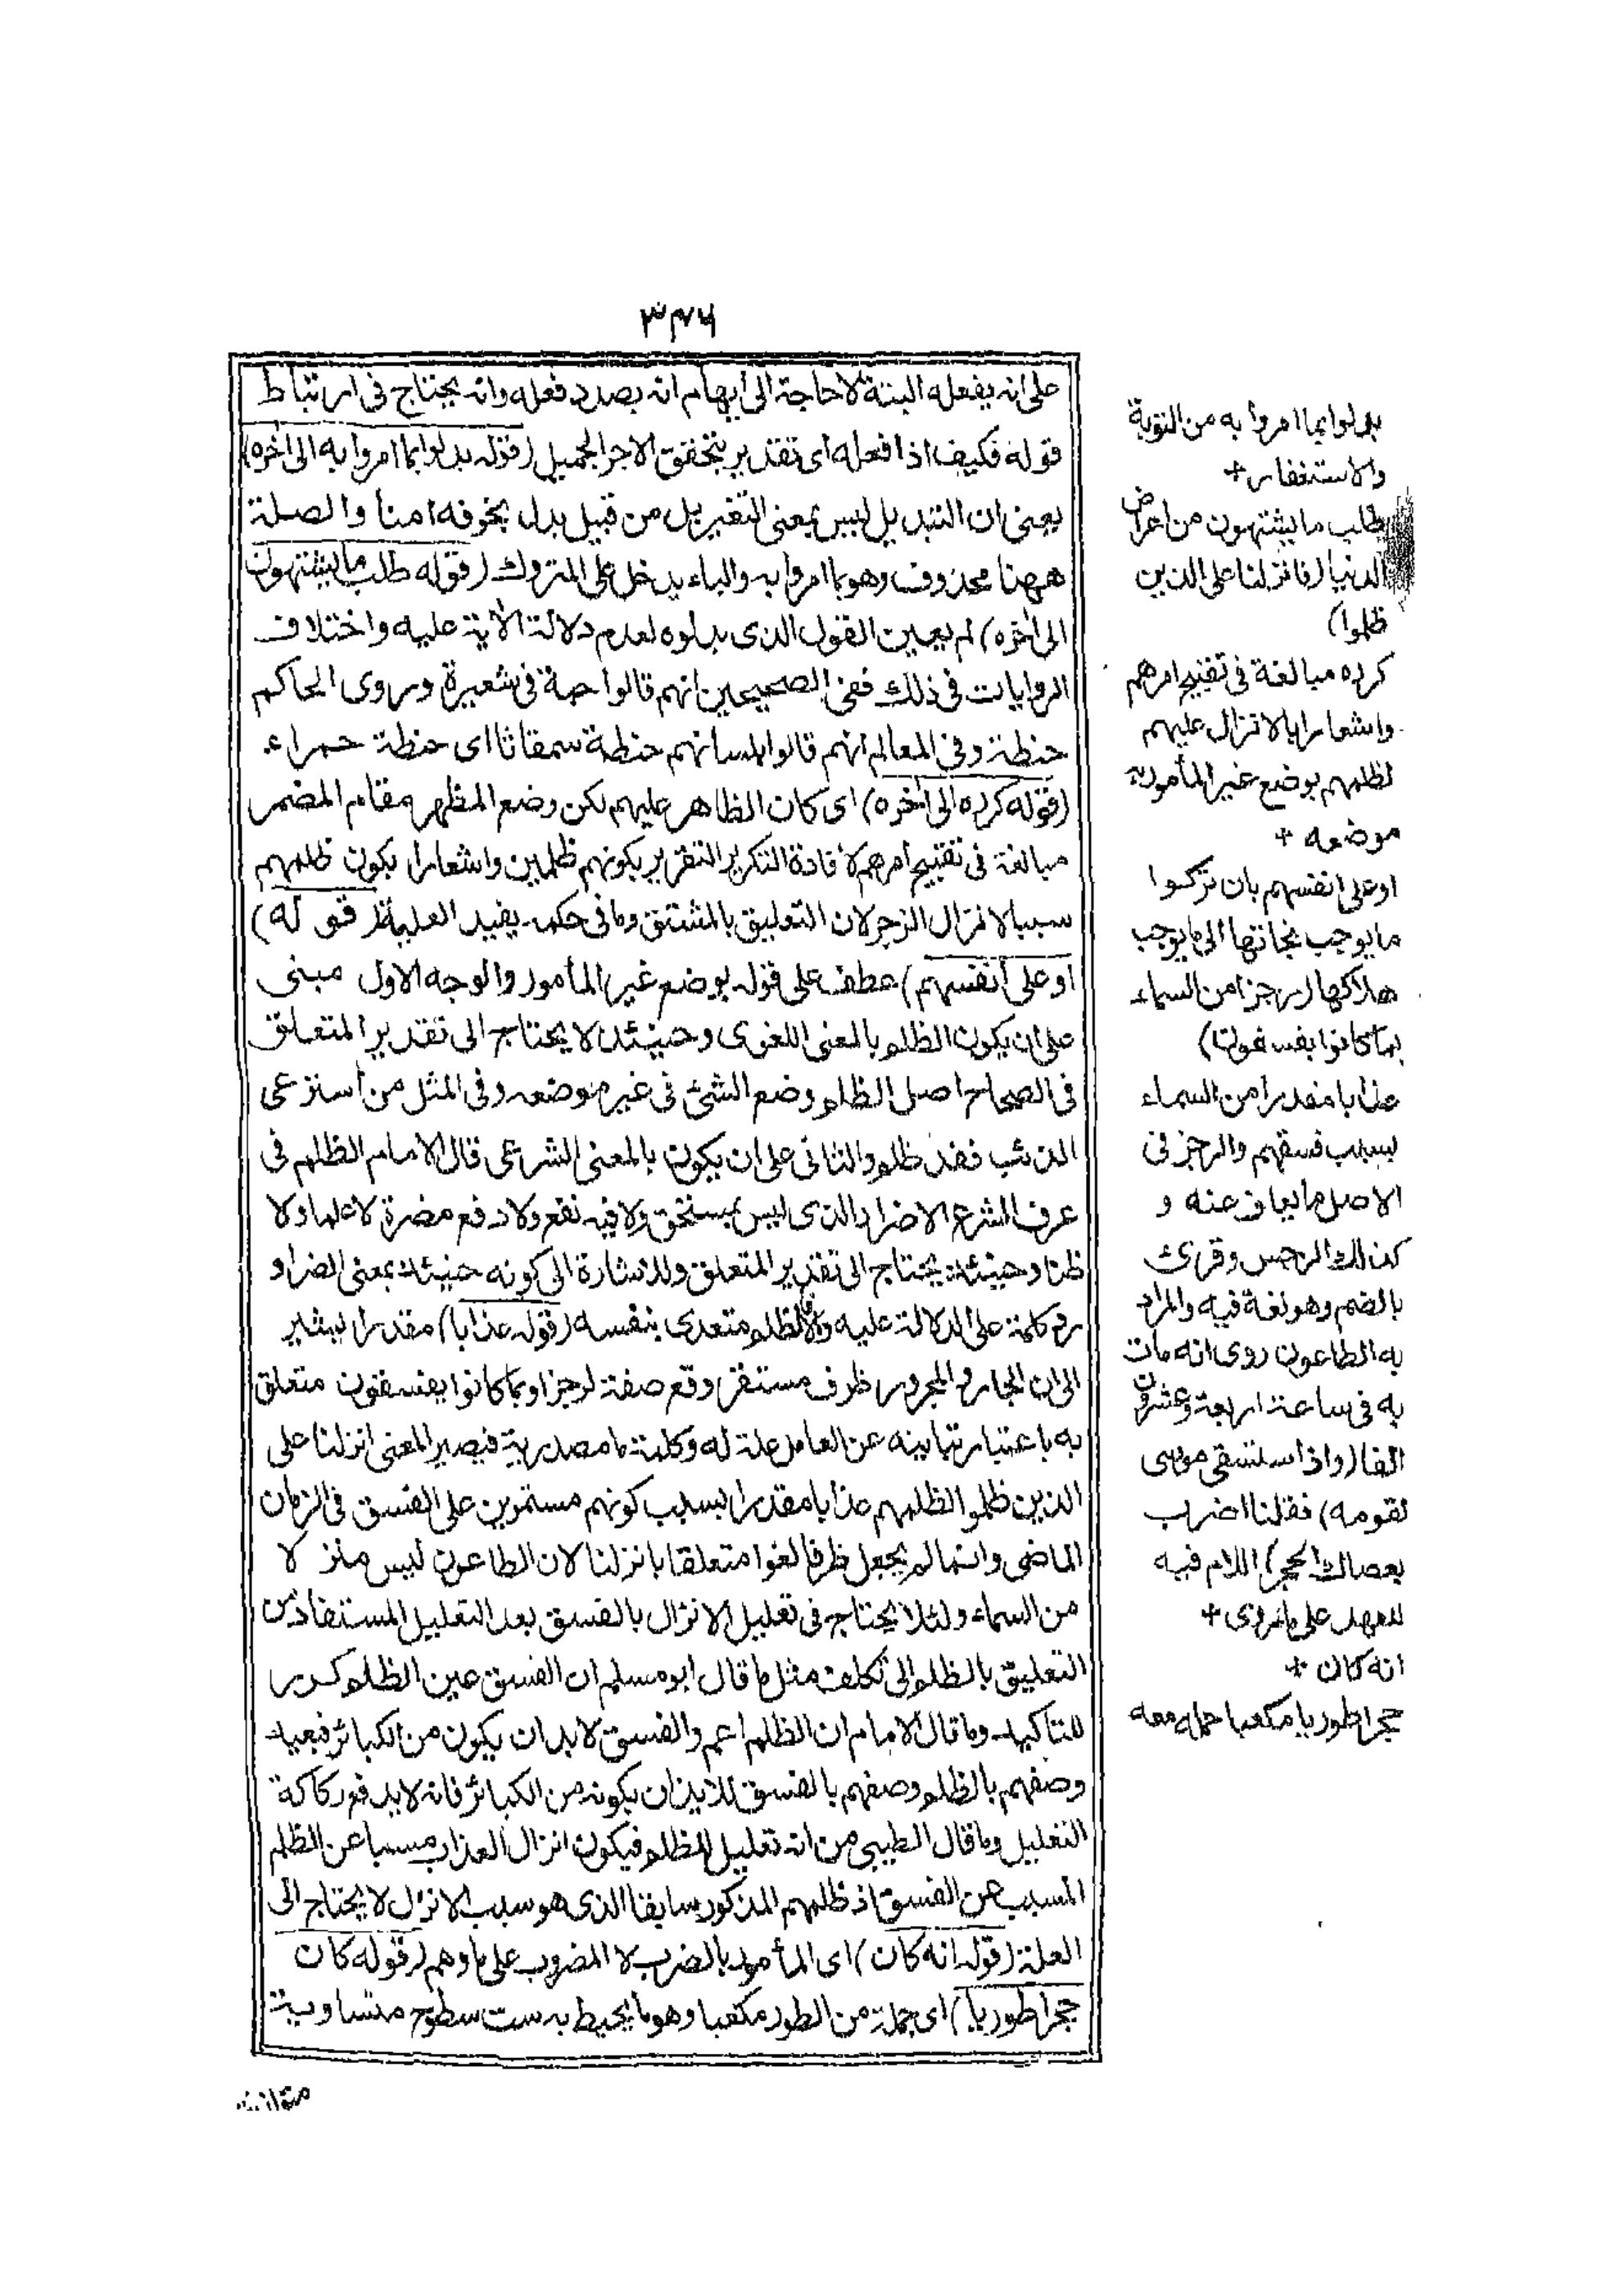 ٣٧٦
على انه يفعله البتة لا حاجة الى ايهام انه بصدد فعله وانه يحتاج فى ارتباط
قوله فكيف اذا فعله اى تقدير يتحقق الاجر الجميل (قوله بدلوا بما امروا به الى اخره)
يعنى ان التبديل ليس بمعنى التغيير بل من قبيل بدل بخوفه امنا والصلة
ههنا محذوف وهو بما امروا به والباء يدخل على المتروك (قوله طلب ما يشتهون
الى اخره) لم يعين القول الذى بدلوه لعدم دلالة الاية عليه واختلاف
الروايات فى ذلك ففى الصحيحين انهم قالوا حبة فى شعيرة وروى الحاكم
حنطة وفى المعالم انهم قالوا بلسانهم حنطة سمقاثا اى حنطة حمراء
(قوله كرره الى اخره) اى كان الظاهر عليهم لكن وضع المظهر مقام المضمر
مبالغة فى تقبيح امرهم لافادة التكرير التقرير بكونهم ظلمين واشعارا بكون ظلمهم
سببا لانزال الرجز لان التعليق بالمشتق وما فى حكمه يفيد العلية (قوله)
او على انفسهم) عطف على قوله بوضع غير المأمور والوجه الاول مبنى
على ان يكون الظلم بالمعنى اللغوى وحينئذ لا يحتاج الى تقدير المتعلق
فى الصحاح اصل الظلم وضع الشئ فى غير موضعه وفى المثل من استرعى
الذئب فقد ظلم والثانى على ان يكون بالمعنى الشرعى قال الامام الظلم فى
عرف الشرع الاضرار الذى ليس بمستحق ولا فيه نفع ولا دفع مضرة لا علما ولا
ظنا وحينئذ يحتاج الى تقدير المتعلق وللاشارة الى كونه حينئذ بمعنى الضرار
كلمة على الدلالة عليه والا فالظلم متعدى بنفسه (قوله عذابا) مقدرا ليشير
الى ان الجار والمجرور ظرف مستقر وقع صفة لرجزا وبما كانوا يفسقون متعلق
به باعتبار نيابته عن العامل علة له وكلمة ما مصدرية فيصير المعنى انزلنا على
الذين ظلموا لظلمهم عذابا مقدرا بسبب كونهم مستمرين على الفسق فى الزمان
الماضى وانما لم يجعل ظرفا لغوا متعلقا بانزلنا لان الطاعون ليس منزلا
من السماء ولئلا يحتاج فى تعليل الانزال بالفسق بعد التعليل المستفاد من
التعليق بالظلم الى تكلف مثل ما قال ابو مسلم ان الفسق عين الظلم كرر
للتاكيد وما قال الامام ان الظلم اعم والفسق لا بد ان يكون من الكبائر فبعد
وصفهم بالظلم وصفهم بالفسق للايذان بكونه من الكبائر فانه لا يدفع ركاكة
التعليل وما قال الطيبى من انه تعليل للظلم فيكون انزال العذاب مسببا عن الظلم
المسبب عن الفسق اذ ظلمهم المذكور سابقا الذى هو سبب الانزال لا يحتاج الى
العلة (قوله انه كان) اى المأمور بالضرب لا المضروب على ما وهم (قوله كان
حجرا طوريا) اى جملة من الطور مكعبا وهو ما يحيط به ست سطوح متساوية
متوازية
بدلوا بما امروا به من التوبة
والاستغفار+
طلب ما يشتهون من اعراض
الدنيا (فانزلنا على الذين
ظلموا)
كرره مبالغة فى تقبيح امرهم
واشعارا بالانزال عليهم
لظلمهم بوضع غير المأمور به
موضعه +
او على انفسهم بان تركوا
ما يوجب نجاتها الى ما يوجب
هلاكها (رجزا من السماء
بما كانوا يفسقون)
عذابا مقدرا من السماء
بسبب فسقهم والرجز فى
الاصل ما يعاف عنه و
كذلك الرجس وقرئ
بالضم وهو لغة فيه والمراد
به الطاعون روى انه مات
به فى ساعة اربعة وعشرون
الفا (واذ استسقى موسى
لقومه) فقلنا اضرب
بعصاك الحجر) اللام فيه
للعهد على ما روى +
انه كان +
حجرا طوريا مكعبا حمله معه